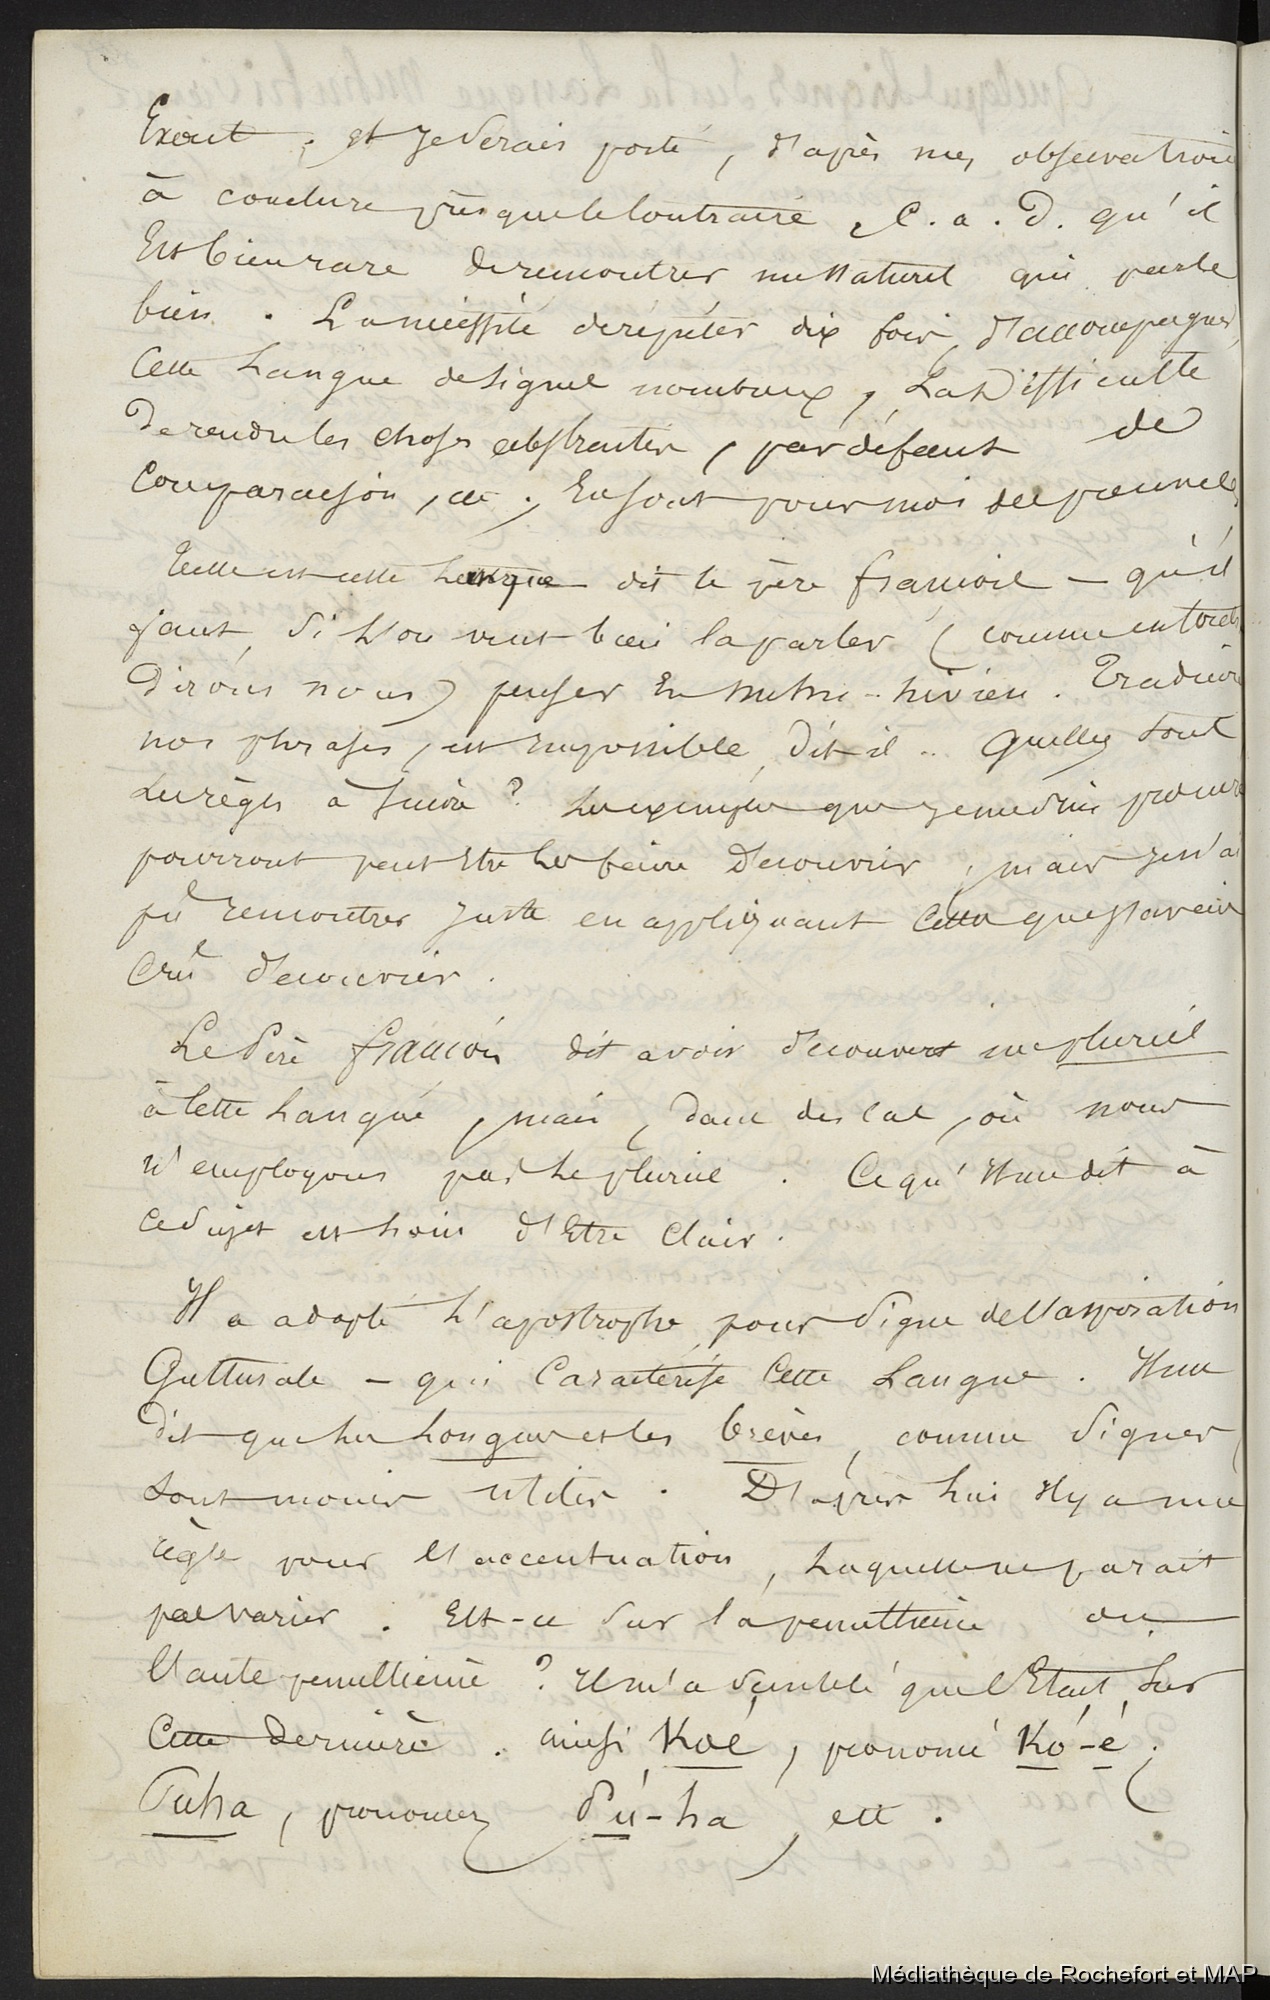 Exact ; et je serais porté, d'après mes observations
à conclure presque le contraire, C. a. D. qu'il
Est bien rare de rencontrer un naturel qui parle
bien . La nécessité de répéter dix fois, d'accompagner
Cette Langue de signes nombreux, La Difficulté
De rendre les choses abstraites, par défaut de
Comparaison, &c ; En sont pour moi des preuves
Telle est cette Langue dit le père françois – qu'il
faut, si l'on veut bien la parler ( comme en toutes
Dirons nous ) penser En nuku-hivien . Traduire
nos phrases, est impossible, dit-il .. Quelles sont
Les règles à suivre ? Les exemples que je me suis procuré
pourront peut Etre les faire Découvrir, mais je n'ai
pû rencontrer juste en appliquant Celles que j'avais
Crû Découvrir .
Le Père françois dit avoir découvert un pluriel
à Cette Langue, mais, dans des Cas, où nous
n'employons pas Le pluriel . Ce qu'Il me dit à
Ce sujet est Loin d'Etre Clair .
Il a adopté L'apostrophe pour signe de l'aspiration
Gutturale – qui Caractérise Cette Langue . Il me
Dit que Les Longues et les brèves, comme signes,
sont moins utiles . D'après Lui Il y a une
règle pour l'accentuation, Laquelle ne parait
pas varier . Est-ce sur la penultième ou
l'antepenultième ? Il m'a semblé que c'Etait sur
Cette Dernière . ainsi Koé, prononcé Kó-é ;
Puha, prononcez Pú-ha, ett .
Médiathèque de Rochefort et MAP